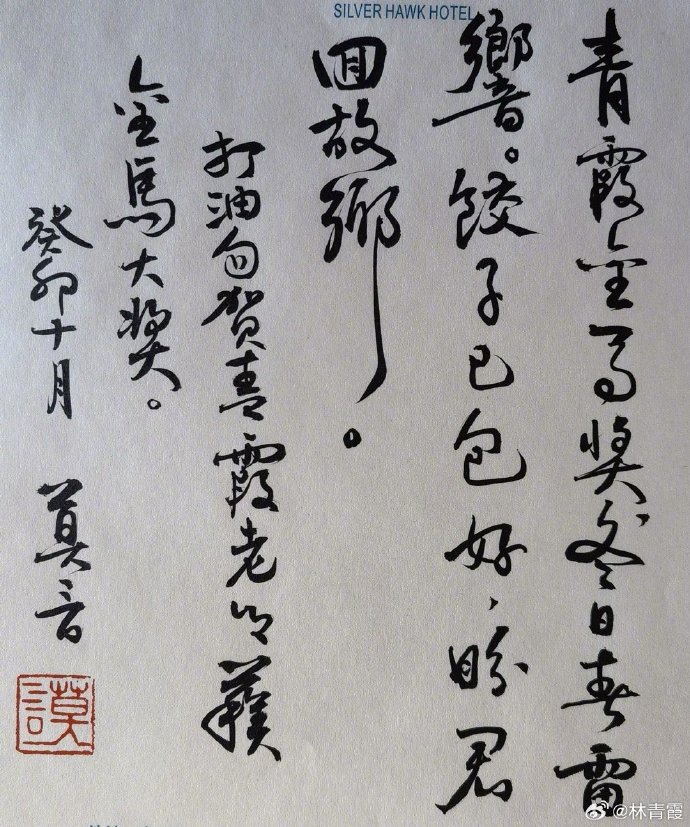 SILVER HAWK HOTEL
青霞金马奖冬日春雷
響。餃子已包好,盼君
囬故鄉。
打油句賀青霞老师獲
金馬大奖。
癸卯十月 莫言
莫言
@林青霞